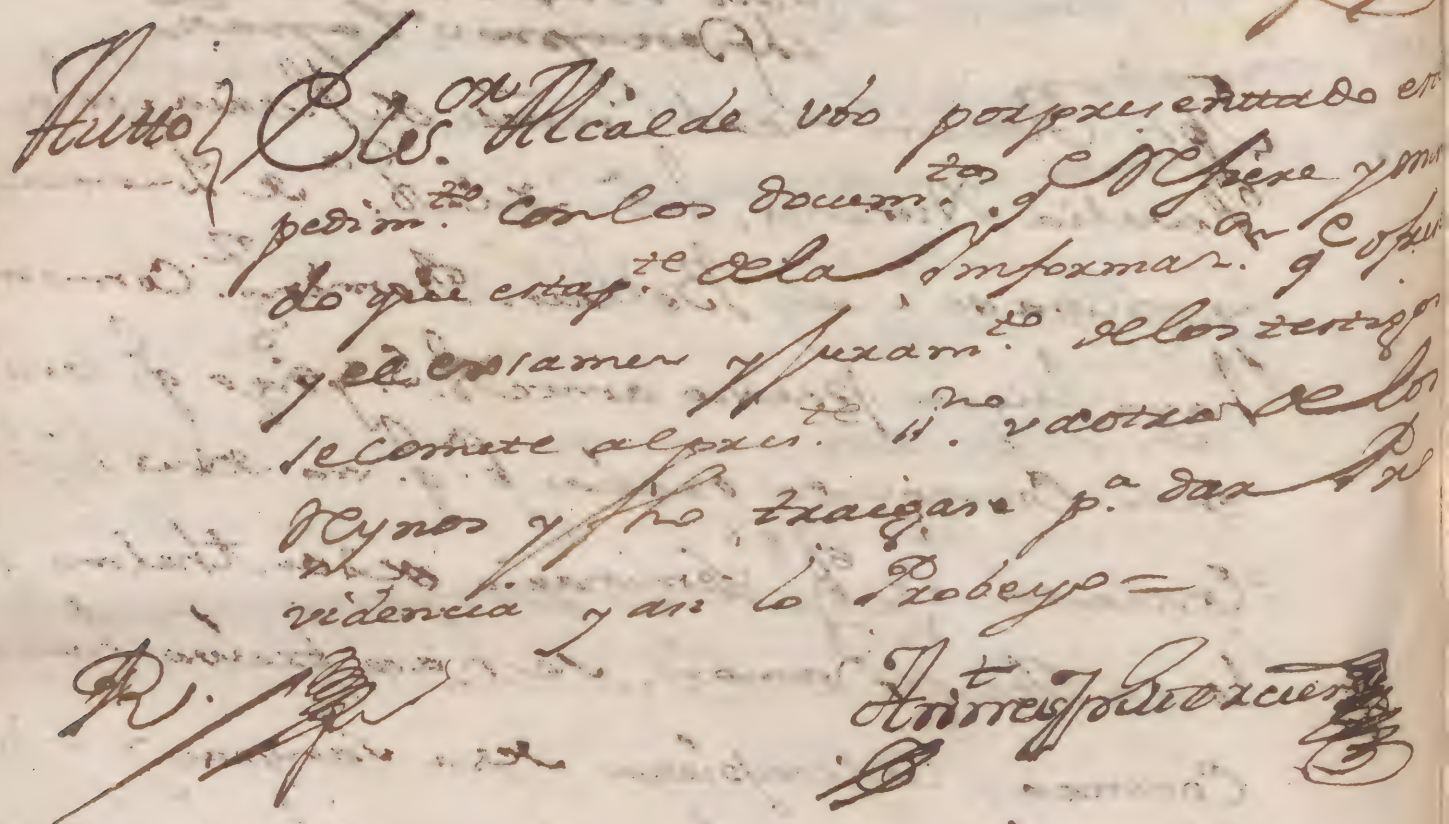 Autto
El s.or Alcalde vbo por presenttado este
pedim.to con los docum.tos q.e Refiere y man
do que esta p.te de la Informaz.on q.e ofrе
y el exsamen y juram.to de los testigos
se comete al pres.te ss.no v a otro de los
Reynos y fho traigase p.a dar Pro
videncia y asi lo Probeyo =